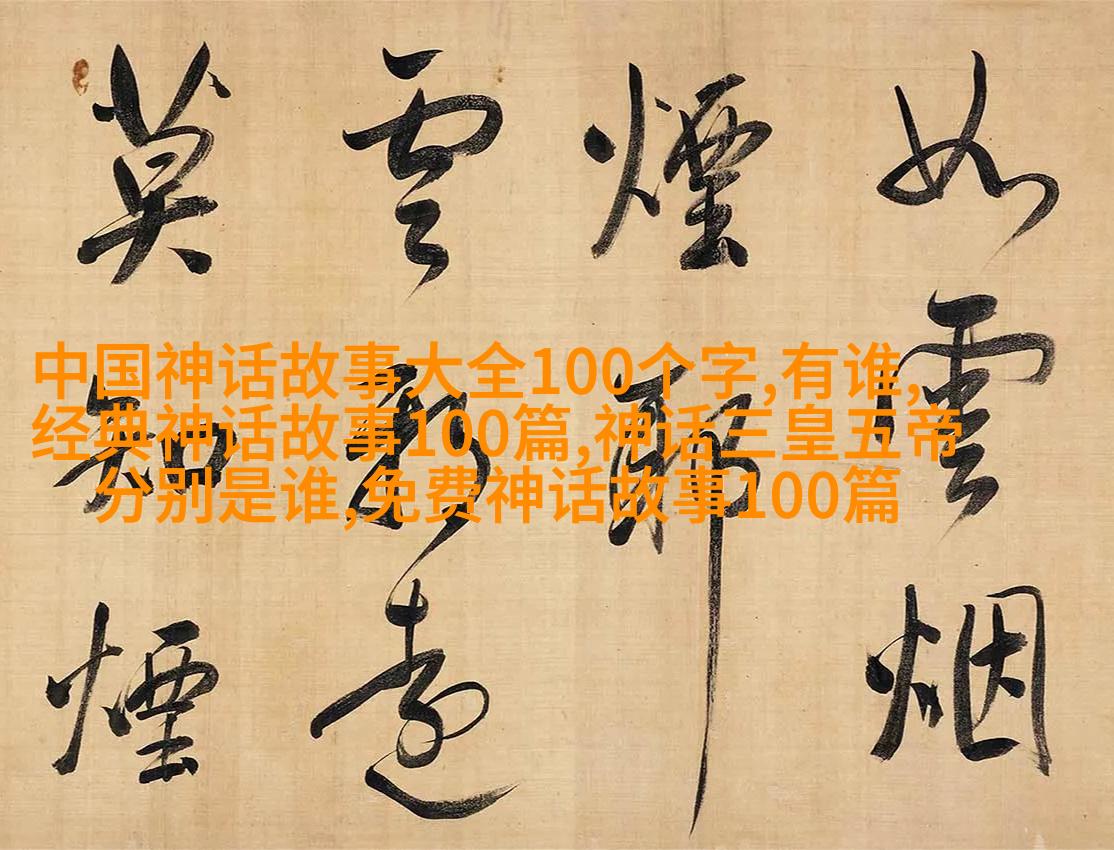 中国神话故事大全100个字,有谁,
经典神话故事100篇,神话三皇五帝
分别是谁,免费神话故事100篇
如雲烟
煙耶
雲遠
莫知煙